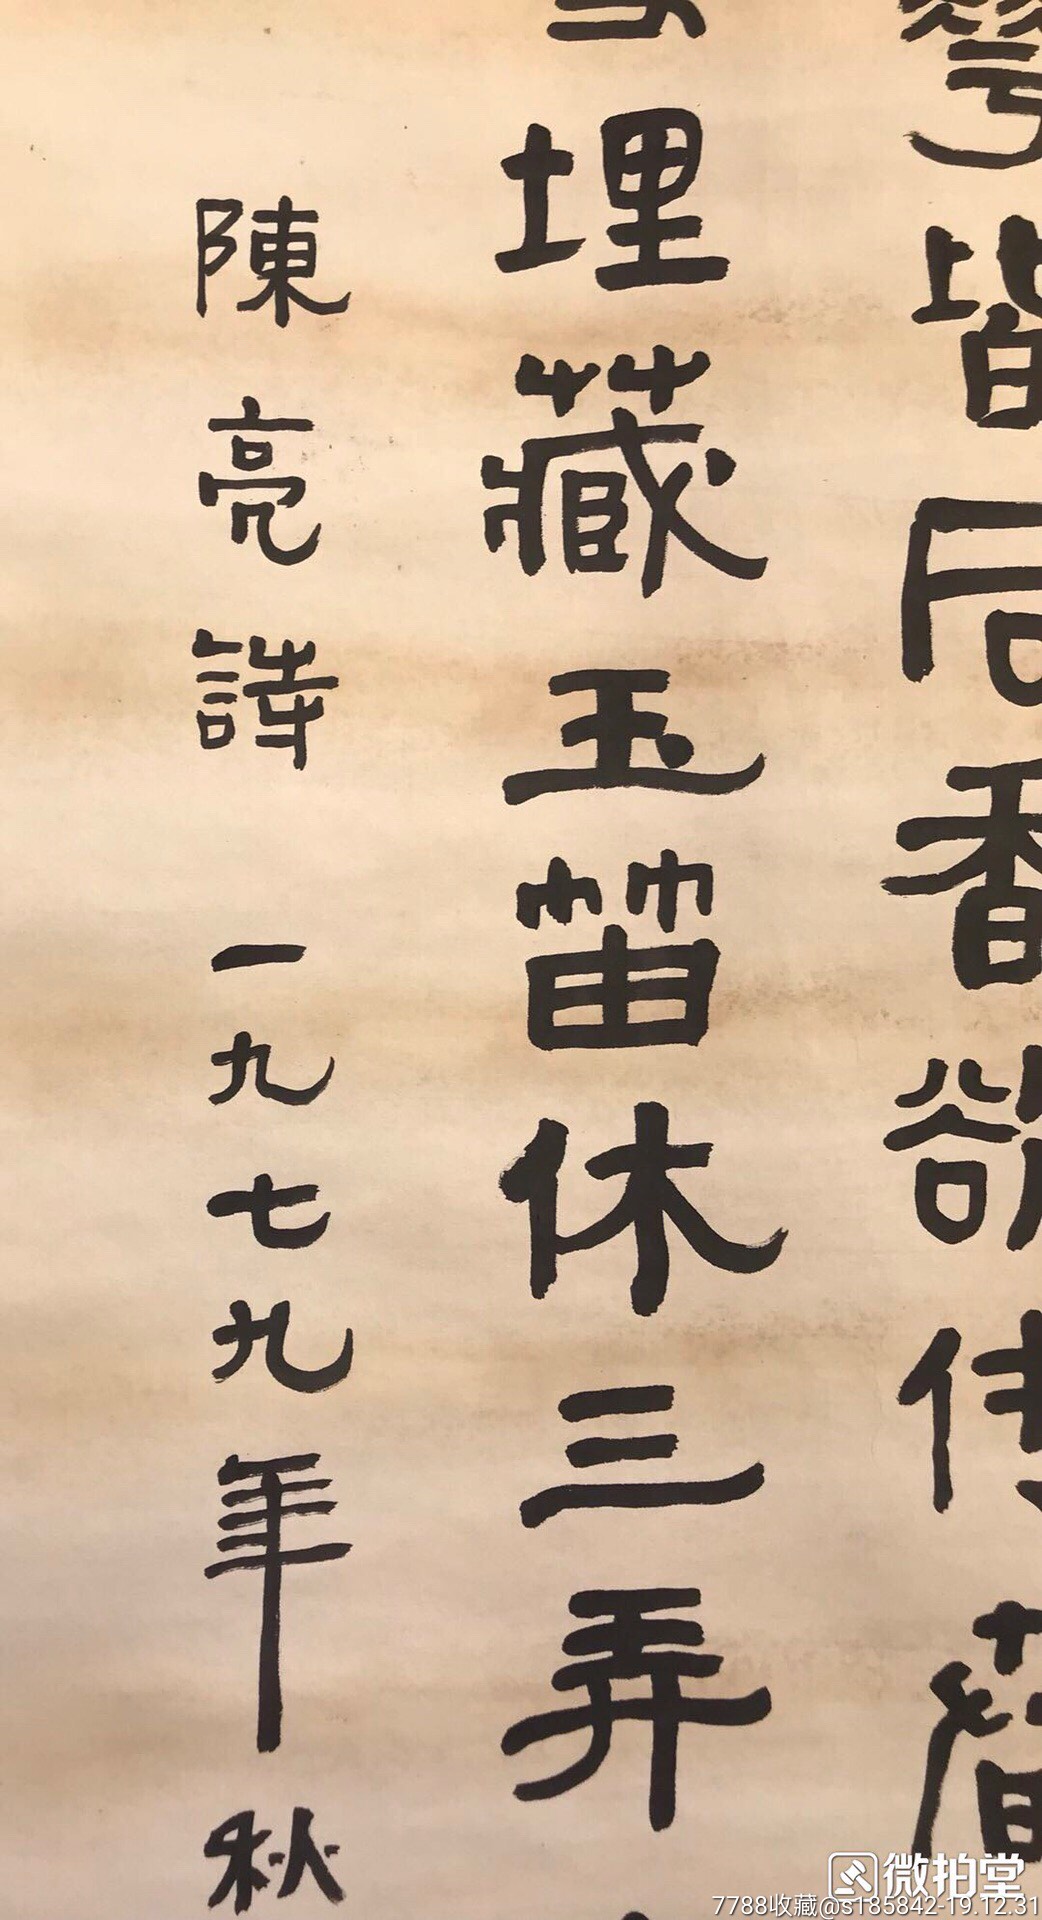 皆后香欲傳春
埋藏玉笛休三弄
陳亮詩 一九七九年秋
微拍堂
7788收藏@s185842-19.12.31